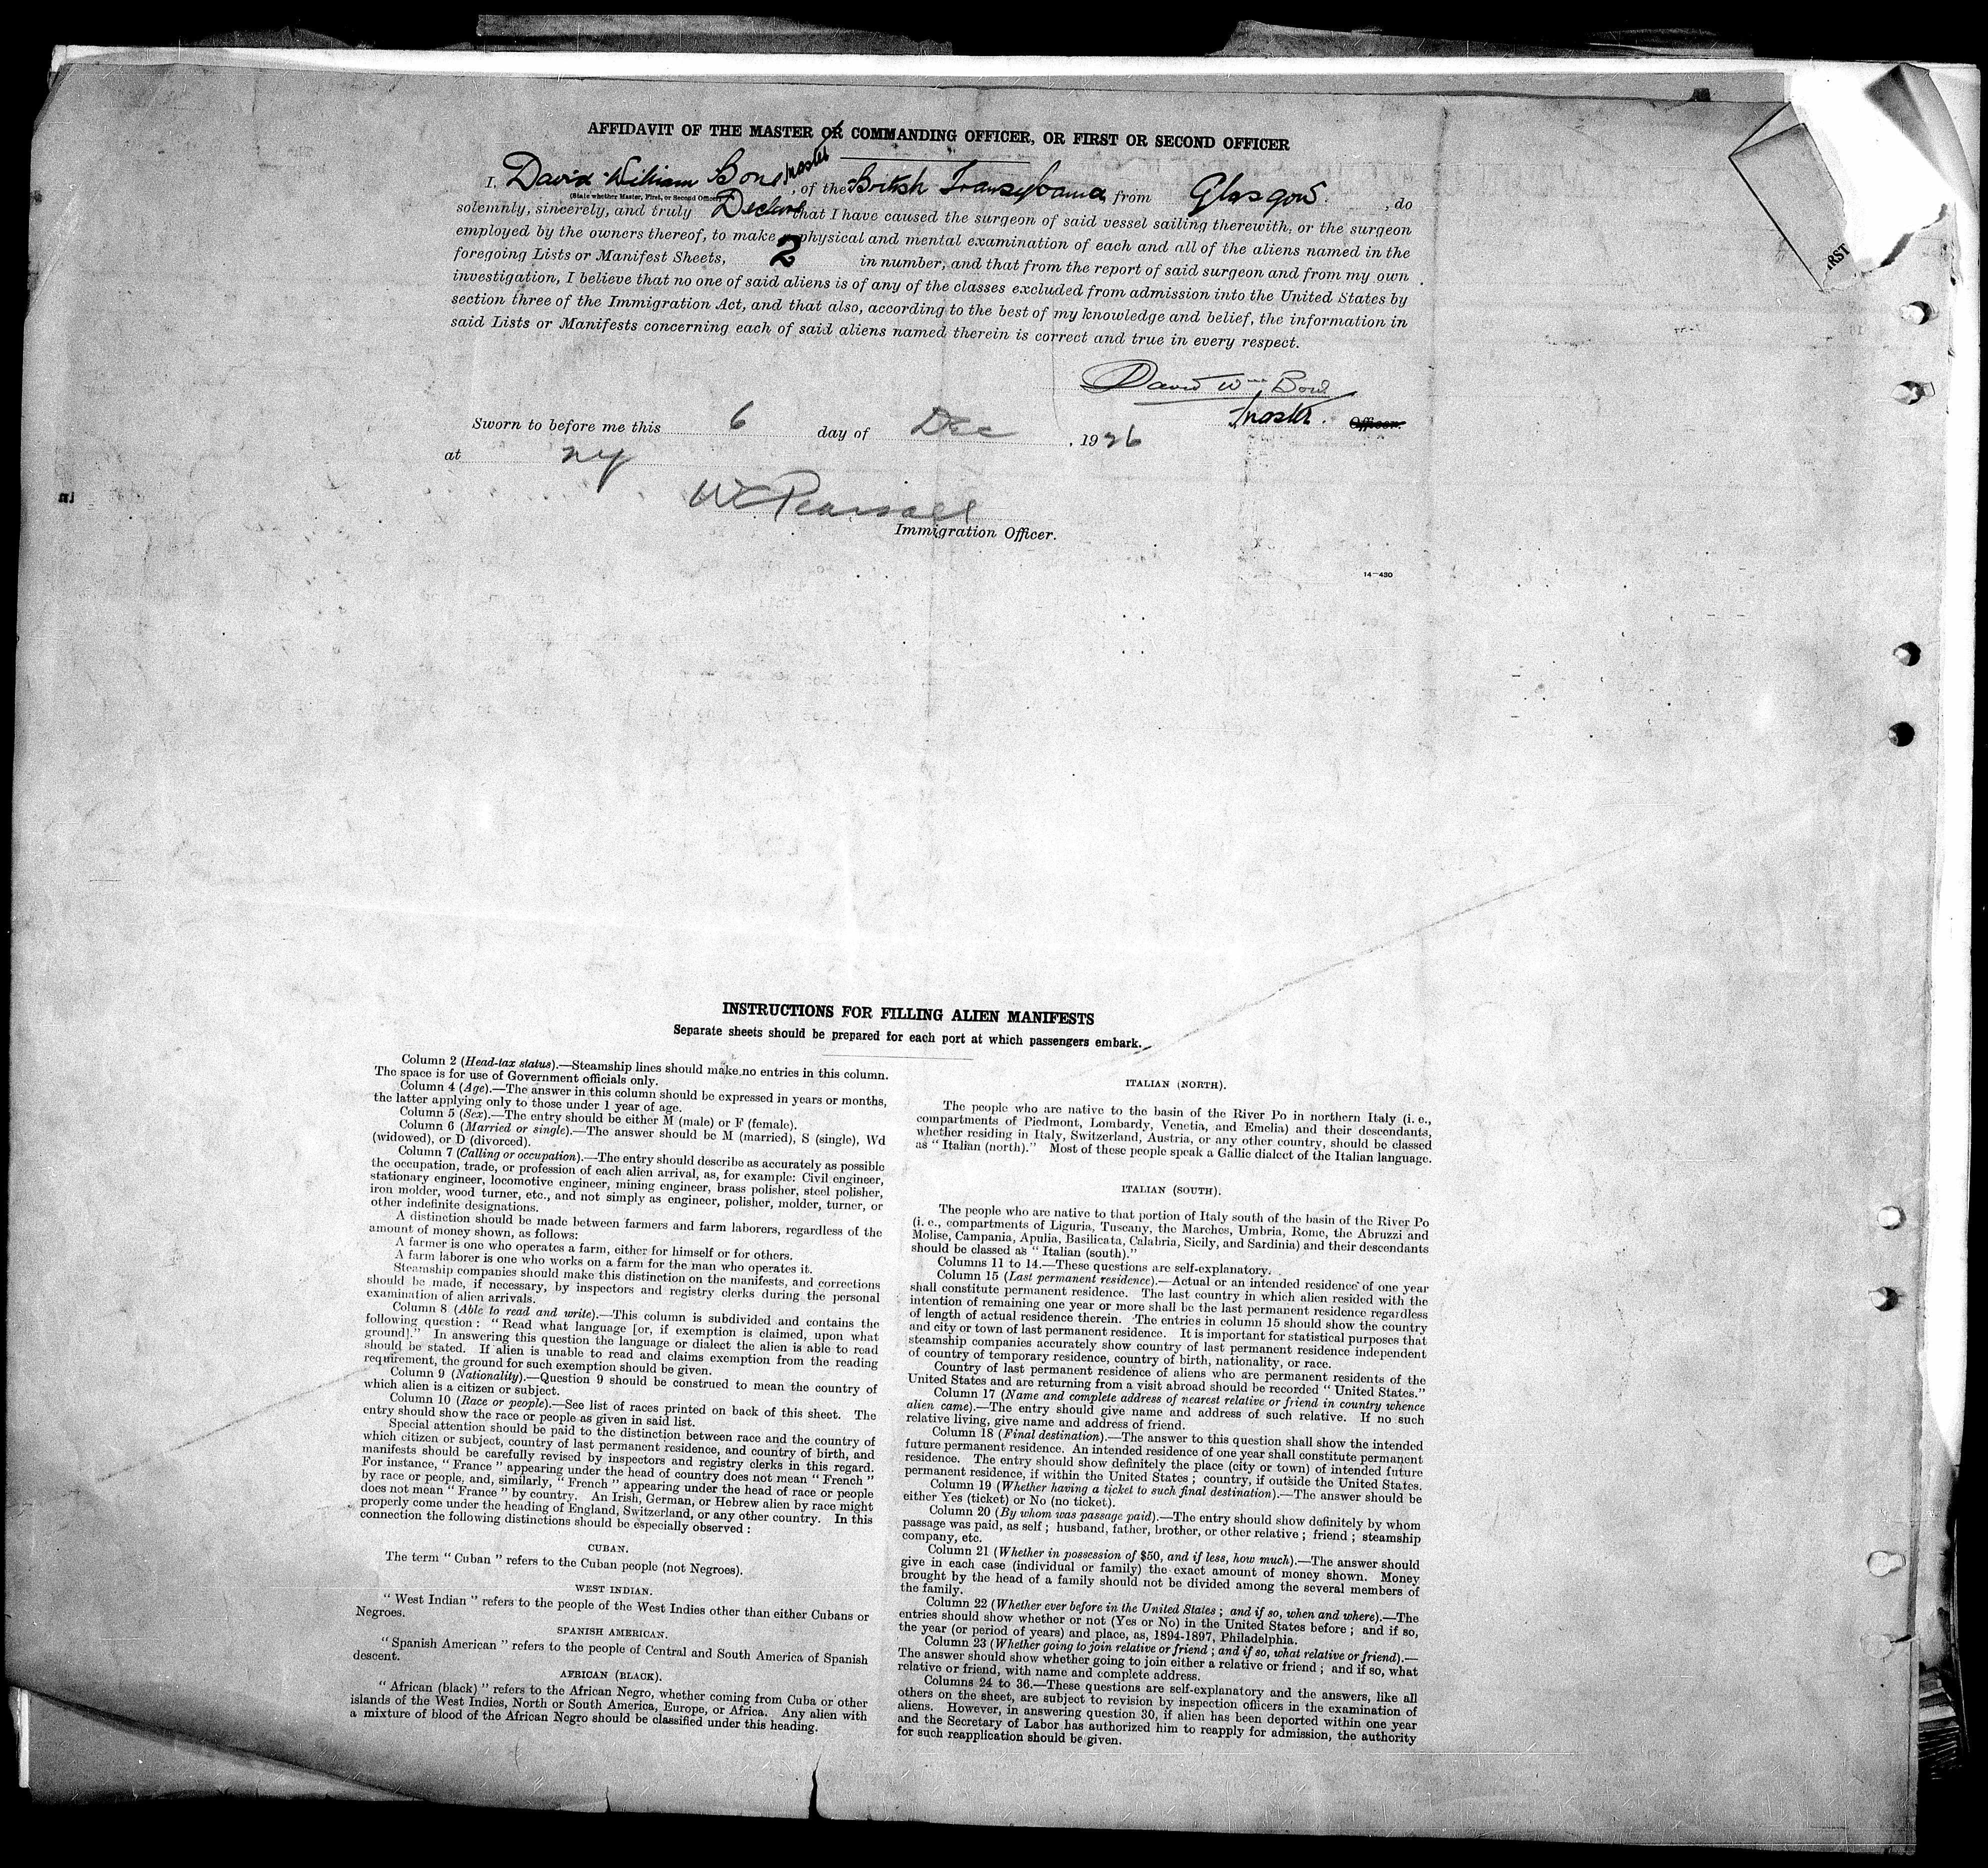 AFFIDAVIT OF THE MASTER OR COMMANDING OFFICER, OR FIRST OR SECOND OFFICER
I, David William Bone, Master, of the British Transylvania, from Glasgow, do
(State whether Master, First, or Second Officer)
solemnly, sincerely, and truly Declare that I have caused the surgeon of said vessel sailing therewith, or the surgeon
employed by the owners thereof, to make a physical and mental examination of each and all of the aliens named in the
foregoing Lists or Manifest Sheets, 2 in number, and that from the report of said surgeon and from my own
investigation, I believe that no one of said aliens is of any of the classes excluded from admission into the United States by
section three of the Immigration Act, and that also, according to the best of my knowledge and belief, the information in
said Lists or Manifests concerning each of said aliens named therein is correct and true in every respect.
David Wm Bone
Master. Officer.
Sworn to before me this 6 day of Dec, 1926
at NY
WC Pearsall
Immigration Officer.
14-430
RST
INSTRUCTIONS FOR FILLING ALIEN MANIFESTS
Separate sheets should be prepared for each port at which passengers embark.
Column 2 (Head-tax status).—Steamship lines should make no entries in this column.
The space is for use of Government officials only.
Column 4 (Age).—The answer in this column should be expressed in years or months,
the latter applying only to those under 1 year of age.
Column 5 (Sex).—The entry should be either M (male) or F (female).
Column 6 (Married or single).—The answer should be M (married), S (single), Wd
(widowed), or D (divorced).
Column 7 (Calling or occupation).—The entry should describe as accurately as possible
the occupation, trade, or profession of each alien arrival, as, for example: Civil engineer,
stationary engineer, locomotive engineer, mining engineer, brass polisher, steel polisher,
iron molder, wood turner, etc., and not simply as engineer, polisher, molder, turner, or
other indefinite designations.
A distinction should be made between farmers and farm laborers, regardless of the
amount of money shown, as follows:
A farmer is one who operates a farm, either for himself or for others.
A farm laborer is one who works on a farm for the man who operates it.
Steamship companies should make this distinction on the manifests, and corrections
should be made, if necessary, by inspectors and registry clerks during the personal
examination of alien arrivals.
Column 8 (Able to read and write).—This column is subdivided and contains the
following question: "Read what language [or, if exemption is claimed, upon what
ground]." In answering this question the language or dialect the alien is able to read
should be stated. If alien is unable to read and claims exemption from the reading
requirement, the ground for such exemption should be given.
Column 9 (Nationality).—Question 9 should be construed to mean the country of
which alien is a citizen or subject.
Column 10 (Race or people).—See list of races printed on back of this sheet. The
entry should show the race or people as given in said list.
Special attention should be paid to the distinction between race and the country of
which citizen or subject, country of last permanent residence, and country of birth, and
manifests should be carefully revised by inspectors and registry clerks in this regard.
For instance, "France" appearing under the head of country does not mean "French"
by race or people, and, similarly, "French" appearing under the head of race or people
does not mean "France" by country. An Irish, German, or Hebrew alien by race might
properly come under the heading of England, Switzerland, or any other country. In this
connection the following distinctions should be especially observed:
CUBAN.
The term "Cuban" refers to the Cuban people (not Negroes).
WEST INDIAN.
"West Indian" refers to the people of the West Indies other than either Cubans or
Negroes.
SPANISH AMERICAN.
"Spanish American" refers to the people of Central and South America of Spanish
descent.
AFRICAN (BLACK).
"African (black)" refers to the African Negro, whether coming from Cuba or other
islands of the West Indies, North or South America, Europe, or Africa. Any alien with
a mixture of blood of the African Negro should be classified under this heading.
ITALIAN (NORTH).
The people who are native to the basin of the River Po in northern Italy (i. e.,
compartments of Piedmont, Lombardy, Venetia, and Emelia) and their descendants,
whether residing in Italy, Switzerland, Austria, or any other country, should be classed
as "Italian (north)." Most of these people speak a Gallic dialect of the Italian language.
ITALIAN (SOUTH).
The people who are native to that portion of Italy south of the basin of the River Po
(i. e., compartments of Liguria, Tuscany, the Marches, Umbria, Rome, the Abruzzi and
Molise, Campania, Apulia, Basilicata, Calabria, Sicily, and Sardinia) and their descendants
should be classed as "Italian (south)."
Columns 11 to 14.—These questions are self-explanatory.
Column 15 (Last permanent residence).—Actual or an intended residence of one year
shall constitute permanent residence. The last country in which alien resided with the
intention of remaining one year or more shall be the last permanent residence regardless
of length of actual residence therein. The entries in column 15 should show the country
and city or town of last permanent residence. It is important for statistical purposes that
steamship companies accurately show country of last permanent residence independent
of country of temporary residence, country of birth, nationality, or race.
Country of last permanent residence of aliens who are permanent residents of the
United States and are returning from a visit abroad should be recorded "United States."
Column 17 (Name and complete address of nearest relative or friend in country whence
alien came).—The entry should give name and address of such relative. If no such
relative living, give name and address of friend.
Column 18 (Final destination).—The answer to this question shall show the intended
future permanent residence. An intended residence of one year shall constitute permanent
residence. The entry should show definitely the place (city or town) of intended future
permanent residence, if within the United States; country, if outside the United States.
Column 19 (Whether having a ticket to such final destination).—The answer should be
either Yes (ticket) or No (no ticket).
Column 20 (By whom was passage paid).—The entry should show definitely by whom
passage was paid, as self; husband, father, brother, or other relative; friend; steamship
company, etc.
Column 21 (Whether in possession of $50, and if less, how much).—The answer should
give in each case (individual or family) the exact amount of money shown. Money
brought by the head of a family should not be divided among the several members of
the family.
Column 22 (Whether ever before in the United States; and if so, when and where).—The
entries should show whether or not (Yes or No) in the United States before; and if so,
the year (or period of years) and place, as, 1894-1897, Philadelphia.
Column 23 (Whether going to join relative or friend; and if so, what relative or friend).—
The answer should show whether going to join either a relative or friend; and if so, what
relative or friend, with name and complete address.
Columns 24 to 36.—These questions are self-explanatory and the answers, like all
others on the sheet, are subject to revision by inspection officers in the examination of
aliens. However, in answering question 30, if alien has been deported within one year
and the Secretary of Labor has authorized him to reapply for admission, the authority
for such reapplication should be given.